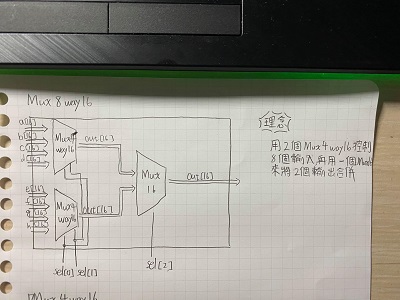 Mux 8 way 16
a[16]
b[16]
c[16]
d[16]
Mux4
way16
out[16]
Mux
16
out[16]
e[16]
f[16]
g[16]
h[16]
Mux4
way16
out[16]
sel[0] sel[1]
sel[2]
理念
用2個Mux4way16控制
8個輸入,再用一個Mux16
來將2個輸出合併
Mux 4 way 16